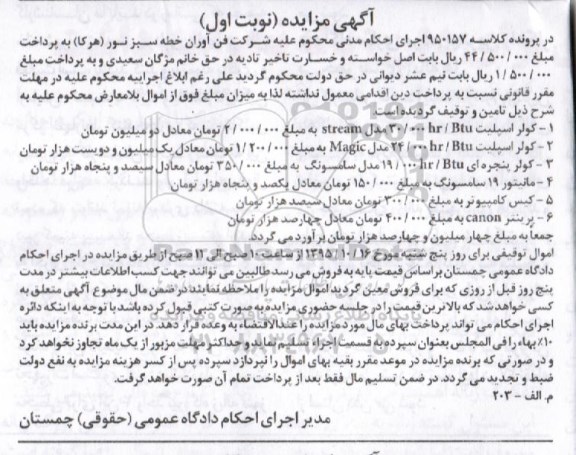 آگهی مزایده (نوبت اول)
در پرونده کلاسه ۹۵۰۱۵۷ اجرای احکام مدنی محکوم علیه شرکت فن آوران خطه سبز نور (هرکا) به پرداخت
مبلغ ۴۴/۵۰۰/۰۰۰ ریال بابت اصل خواسته و خسارت تاخیر تادیه در حق خانم مژگان سعیدی و به پرداخت مبلغ
۱/۵۰۰/۰۰۰ ریال بابت نیم عشر دیوانی در حق دولت محکوم گردید علی رغم ابلاغ اجراییه محکوم علیه در مهلت
مقرر قانونی نسبت به پرداخت دین اقدامی معمول نداشته لذا به میزان مبلغ فوق از اموال بلامعارض محکوم علیه به
شرح ذیل تامین و توقیف گردیده است
۱- کولر اسپلیت ۳۰/۰۰۰ hr/Btu مدل stream به مبلغ ۲/۰۰۰/۰۰۰ تومان معادل دو میلیون تومان
۲- کولر اسپلیت ۲۴/۰۰۰ hr/Btu مدل Magic به مبلغ ۱/۲۰۰/۰۰۰ تومان معادل یک میلیون و دویست هزار تومان
۳- کولر پنجره ای ۱۹/۰۰۰ hr/Btu مدل سامسونگ به مبلغ ۳۵۰/۰۰۰ تومان معادل سیصد و پنجاه هزار تومان
۴- مانیتور ۱۹ سامسونگ به مبلغ ۱۵۰/۰۰۰ تومان معادل یکصد و پنجاه هزار تومان
۵- کیس کامپیوتر به مبلغ ۳۰۰/۰۰۰ تومان معادل سیصد هزار تومان
۶- پرینتر canon به مبلغ ۴۰۰/۰۰۰ تومان معادل چهارصد هزار تومان
جمعا به مبلغ چهار میلیون و چهارصد هزار تومان برآورد می گردد.
اموال توقیفی برای روز پنج شنبه مورخ ۱۳۹۵/۱۰/۱۶ از ساعت ۱۰ صبح الی ۱۲ صبح از طریق مزایده در اجرای احکام
دادگاه عمومی چمستان براساس قیمت پایه به فروش می رسد طالبین می توانند جهت کسب اطلاعات بیشتر در مدت
پنج روز قبل از روزی که برای فروش معین گردید اموال مزایده را ملاحظه نمایند در ضمن مال موضوع آگهی متعلق به
کسی خواهد شد که بالاترین قیمت را در جلسه حضوری مزایده به صورت کتبی قبول کرده باشد با توجه به اینکه دائره
اجرای احکام می تواند پرداخت بهای مال مورد مزایده را عندالاقتضاء به وعده قرار دهد. در این مدت برنده مزایده باید
۱۰٪ بهاء را فی المجلس بعنوان سپرده به قسمت اجراء تسلیم نماید و حداکثر مهلت مزبور از یک ماه تجاوز نخواهد کرد
و در صورتی که برنده مزایده در موعد مقرر بقیه بهای اموال را نپردازد سپرده پس از کسر هزینه مزایده به نفع دولت
ضبط و تجدید می گردد. در ضمن تسلیم مال فقط بعد از پرداخت تمام آن صورت خواهد گرفت.
م. الف - ۲۰۳
مدیر اجرای احکام دادگاه عمومی (حقوقی) چمستان